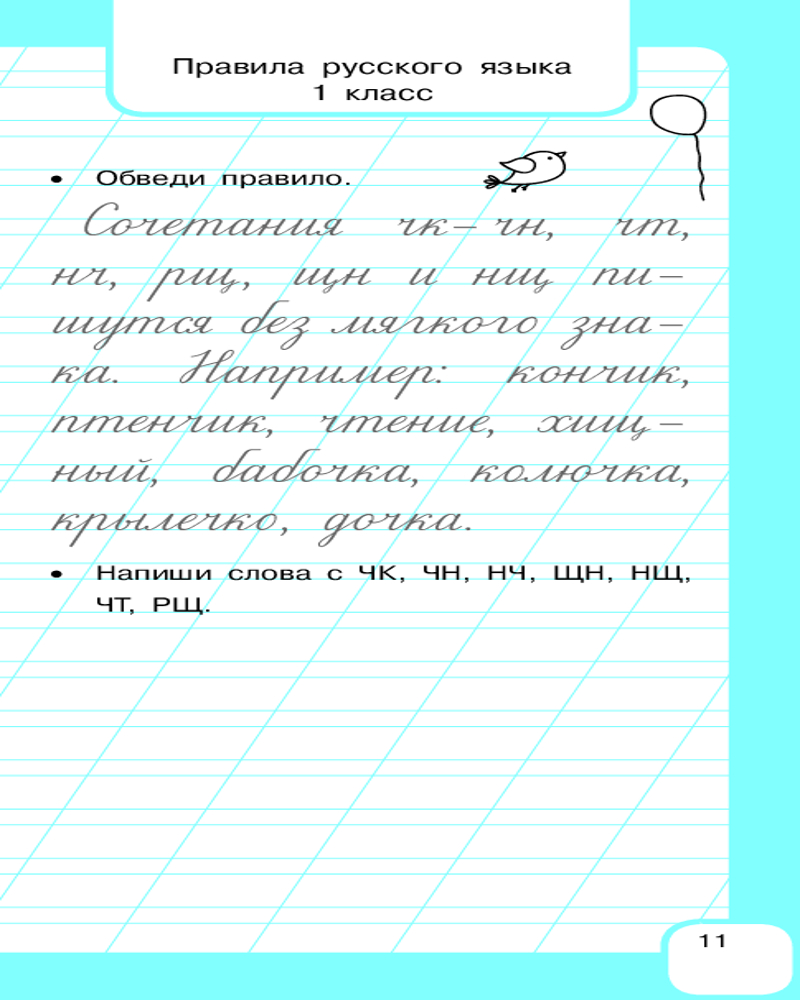 Правила русского языка
1 класс
• Обведи правило.
Сочетания чк–чн, чт,
нч, рщ, щн и нщ пи–
шутся без мягкого зна–
ка. Например: кончик,
птенчик, чтение, хищ–
ный, бабочка, колючка,
крылечко, дочка.
• Напиши слова с ЧК, ЧН, НЧ, ЩН, НЩ,
ЧТ, РЩ.
11